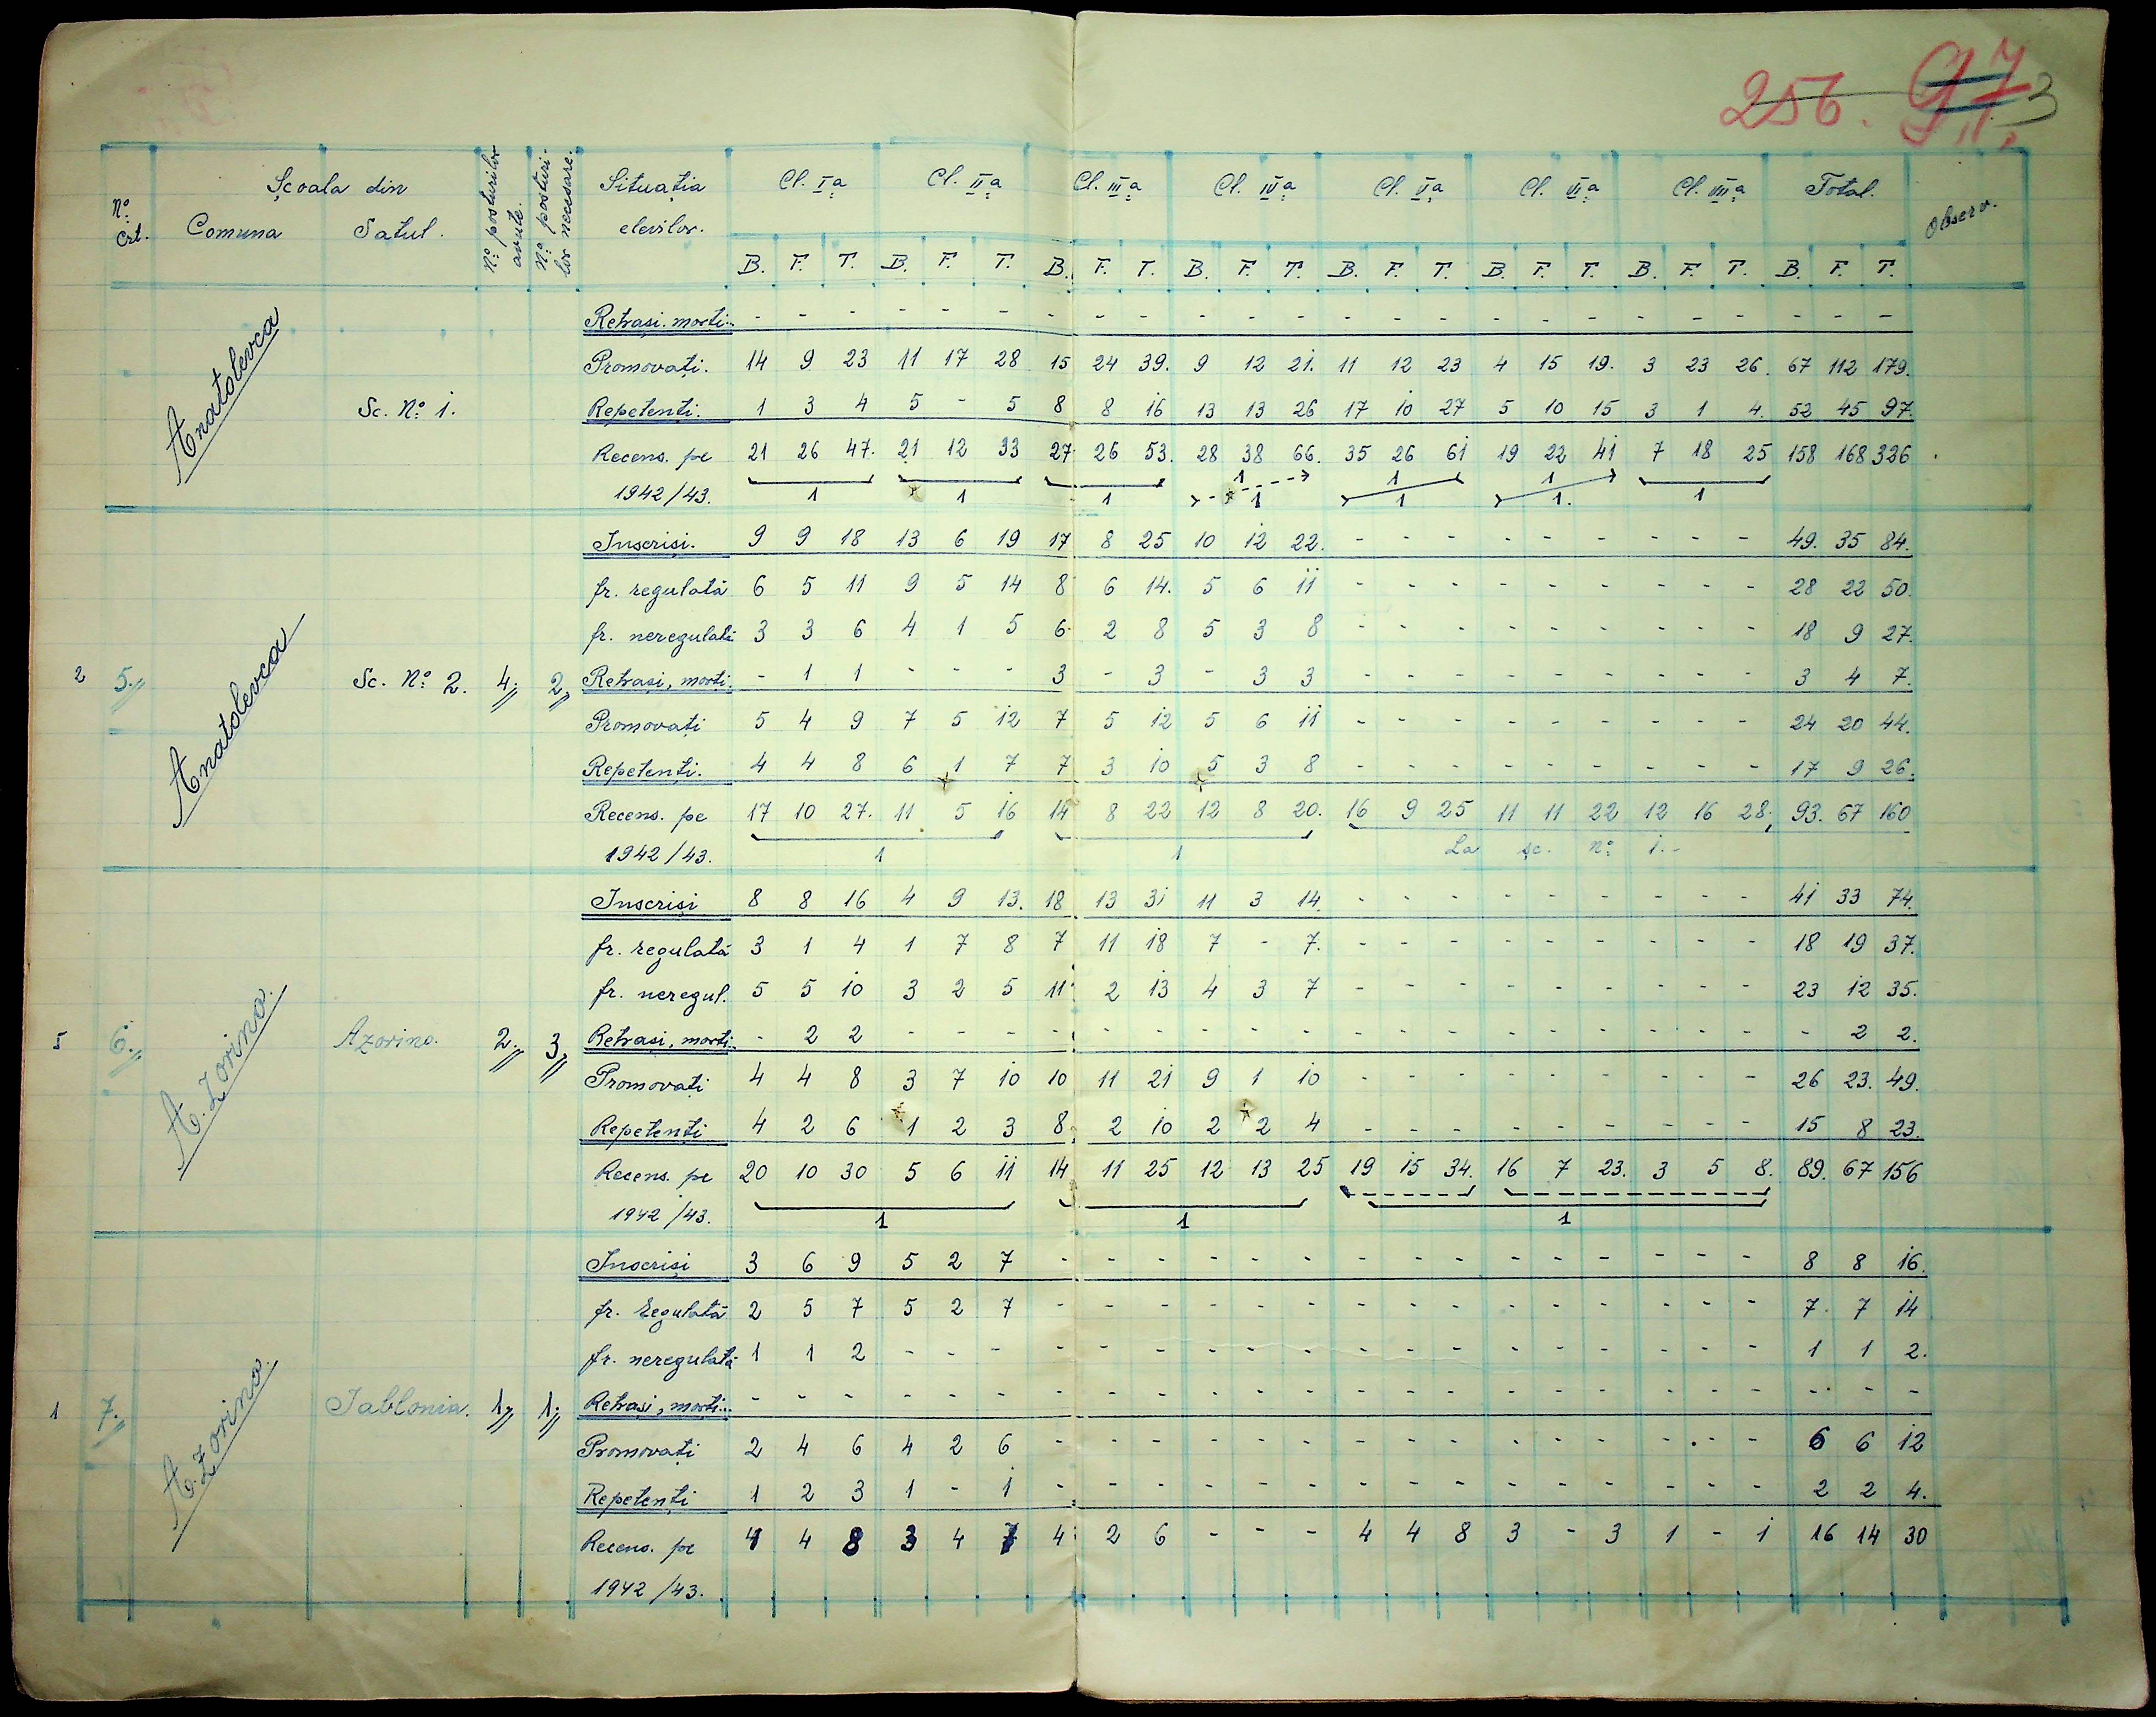 256. 97 3
Nº Crt. Școala din Nº posturilor avute. Nº posturilor necesare. Situația elevilor. Cl. Iª Cl. IIª Cl. IIIª Cl. IVª Cl. Vª Cl. VIª Cl. VIIª Total. Observ.
Comuna Satul.
B. F. T. B. F. T. B. F. T. B. F. T. B. F. T. B. F. T. B. F. T. B. F. T.
Anatolevca Sc. Nº 1.
Retrași. morți.. - - - - - - - - - - - - - - - - - - - - - - - -
Promovați. 14 9 23 11 17 28 15 24 39. 9 12 21. 11 12 23 4 15 19. 3 23 26. 67 112 179.
Repetenți. 1 3 4 5 - 5 8 8 16 13 13 26 17 10 27 5 10 15 3 1 4. 52 45 97.
Recens. pe 21 26 47. 21 12 33 27 26 53. 28 38 66. 35 26 61 19 22 41 7 18 25 158 168 326
1 1 1
1942/43. 1 1 1 1 1 1. 1
2 5. Anatolevca Sc. Nº 2. 4. 2
Inscriși. 9 9 18 13 6 19 17 8 25 10 12 22. - - - - - - - - - 49. 35 84.
fr. regulată 6 5 11 9 5 14 8 6 14. 5 6 11 - - - - - - - - - 28 22 50.
fr. neregulată 3 3 6 4 1 5 6 2 8 5 3 8 - - - - - - - - - 18 9 27.
Retrași, morți. - 1 1 - - - 3 - 3 - 3 3 - - - - - - - - - 3 4 7.
Promovați 5 4 9 7 5 12 7 5 12 5 6 11 - - - - - - - - - 24 20 44.
Repetenți. 4 4 8 6 1 7 7 3 10 5 3 8 - - - - - - - - - 17 9 26.
Recens. pe 17 10 27. 11 5 16 14 8 22 12 8 20. 16 9 25 11 11 22 12 16 28, 93. 67 160
1942/43. 1 1 La șc. nº 1.-
5 6. A. Zorino. Azorino. 2. 3
Inscriși 8 8 16 4 9 13. 18 13 31 11 3 14. - - - - - - - - - 41 33 74.
fr. regulată 3 1 4 1 7 8 7 11 18 7 - 7. - - - - - - - - - 18 19 37.
fr. neregul. 5 5 10 3 2 5 11 2 13 4 3 7 - - - - - - - - - 23 12 35.
Retrași, morți.. - 2 2 - - - - - - - - - - - - - - - - - - - 2 2.
Promovați 4 4 8 3 7 10 10 11 21 9 1 10 - - - - - - - - - 26 23. 49.
Repetenți 4 2 6 1 2 3 8 2 10 2 2 4 - - - - - - - - - 15 8 23.
Recens. pe 20 10 30 5 6 11 14 11 25 12 13 25 19 15 34. 16 7 23. 3 5 8. 89. 67 156
1942/43. 1 1 1
1 7. A. Zorino. Iablonia. 1. 1.
Inscriși 3 6 9 5 2 7 - - - - - - - - - - - - - - - 8 8 16.
fr. regulată 2 5 7 5 2 7 - - - - - - - - - - - - - - - 7. 7 14
fr. neregulată 1 1 2 - - - - - - - - - - - - - - - - - - 1 1 2.
Retrași, morți... - - - - - - - - - - - - - - - - - - - - - - - -
Promovați 2 4 6 4 2 6 - - - - - - - - - - - - - - - 6 6 12
Repetenți 1 2 3 1 - 1 - - - - - - - - - - - - - - - 2 2 4.
Recens. pe 4 4 8 3 4 7 4 2 6 - - - 4 4 8 3 - 3 1 - 1 16 14 30
1942/43.